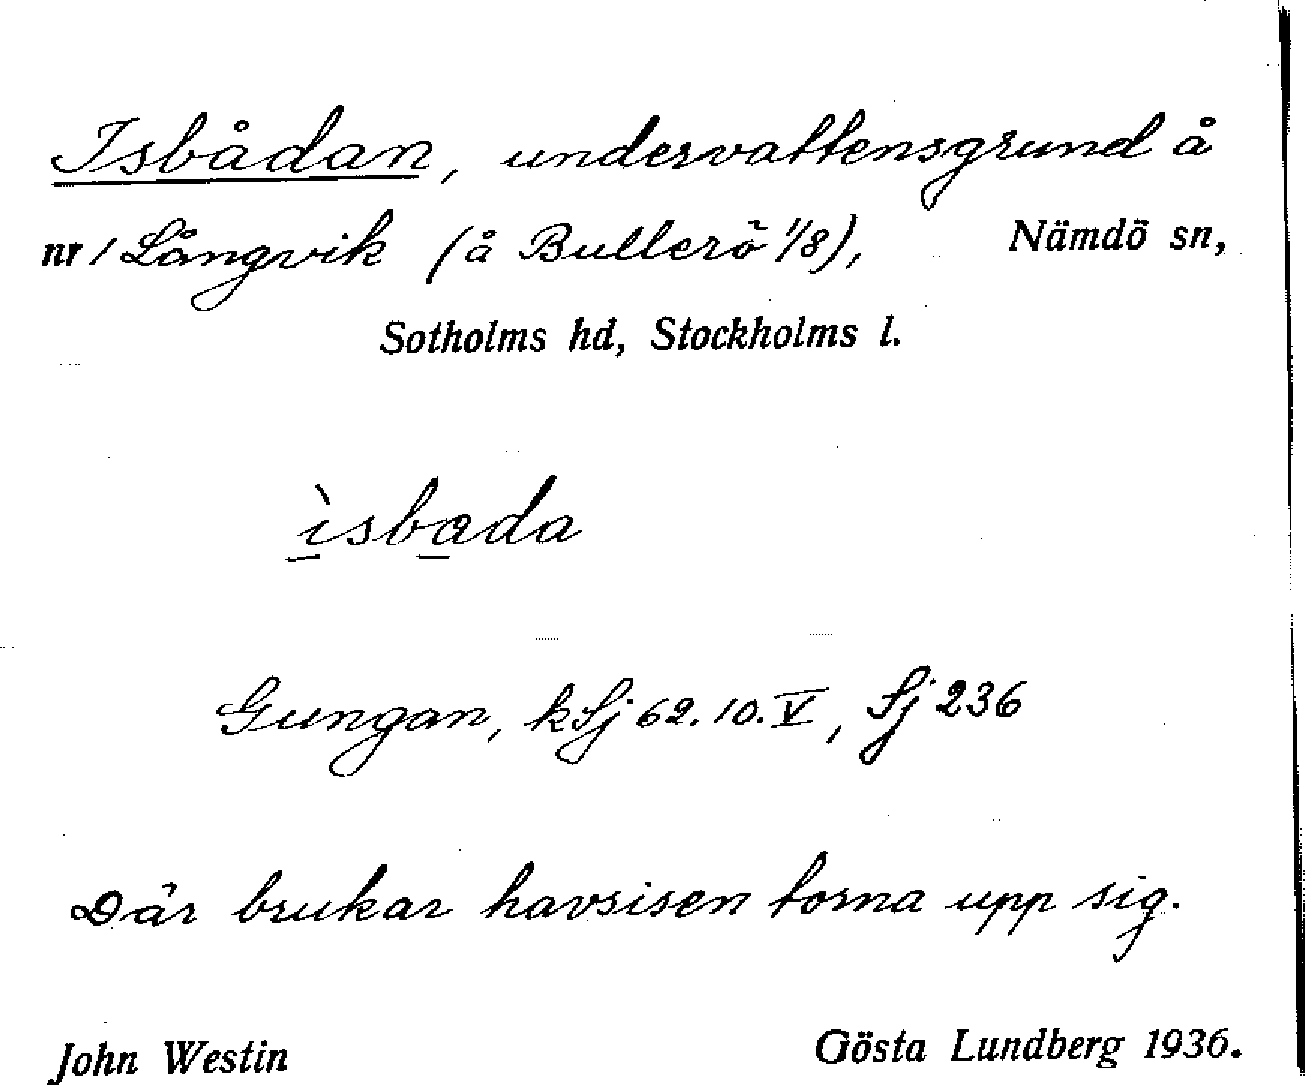 Isbådan, undervattensgrund å
nr 1 Långvik (å Bullerö 1/8), Nämdö sn,
Sotholms hd, Stockholms l.
ìsbada
Gungan, kSj 62.10.V, Sj 236
Där brukar havsisen torna upp sig.
John Westin Gösta Lundberg 1936.